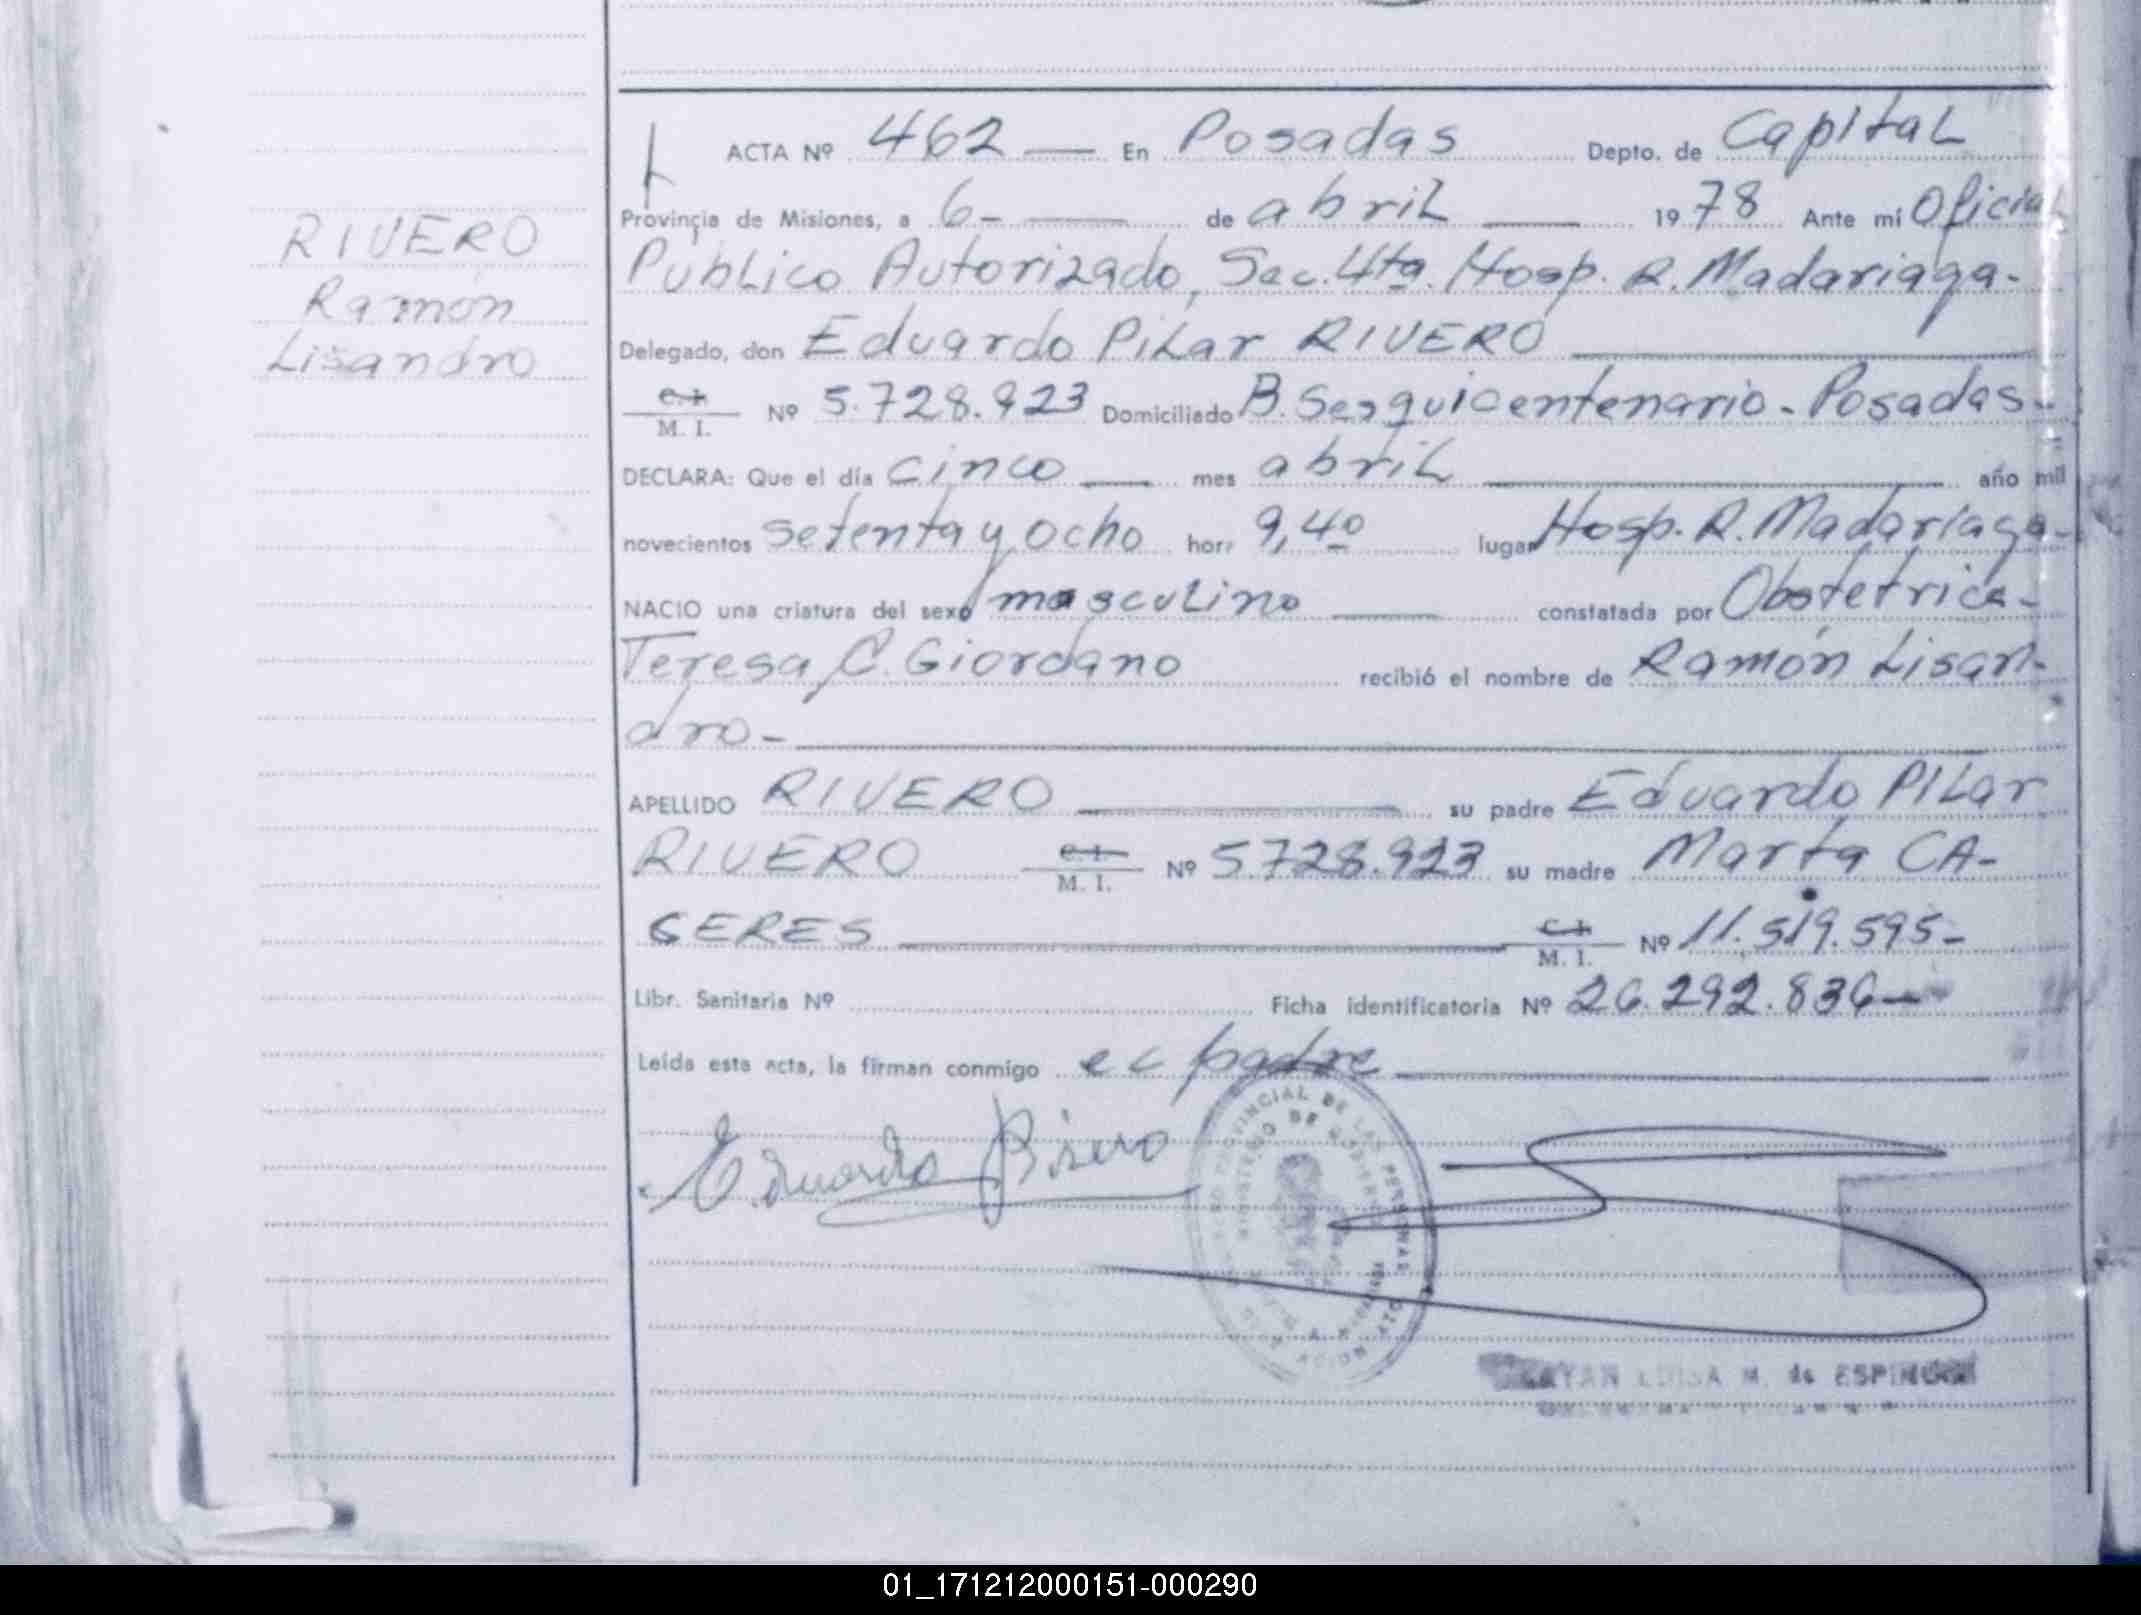 RIVERO
Ramón
Lisandro
ACTA Nº 462 — En Posadas Depto. de Capital
Provincia de Misiones, a 6- — de abril — 1978 Ante mí Oficial
Publico Autorizado, Sec. 4ta. Hosp. R. Madariaga-
Delegado, don Eduardo Pilar RIVERO
C. I. / M. I. Nº 5.728.923 Domiciliado B. Sesquicentenario - Posadas-
DECLARA: Que el día cinco — mes abril — año mil
novecientos setenta y ocho hora 9,40 lugar Hosp. R. Madariaga-
NACIO una criatura del sexo masculino — constatada por Obstetrica-
Teresa C. Giordano recibió el nombre de Ramón Lisan-
dro-
APELLIDO RIVERO — su padre Eduardo Pilar
RIVERO C. I. / M. I. Nº 5728.923 su madre Marta CA-
CERES — C. I. / M. I. Nº 11.519.595-
Libr. Sanitaria Nº Ficha identificatoria Nº 26.292.836-
Leída esta acta, la firman conmigo el padre
Eduardo Rivero
PROVINCIAL DE LAS PERSONAS
MINISTERIO DE GOBIERNO
LUISA M. de ESPINDOLA
01_171212000151-000290